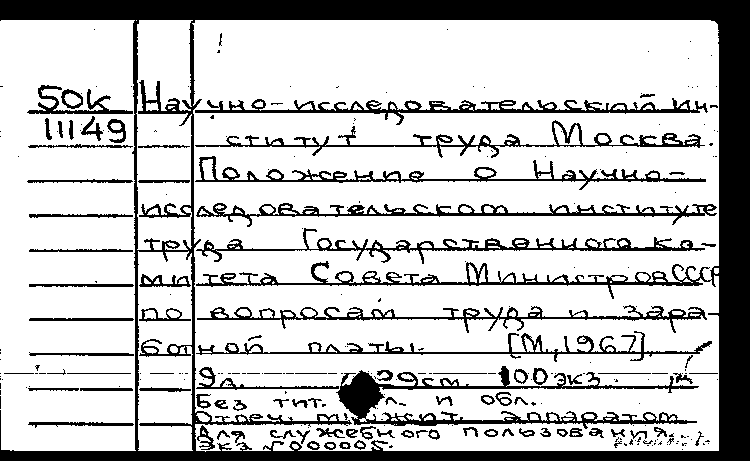 50к Научно-исследовательский ин-
11149 ститут труда. Москва.
Положение о Научно-
исследовательском институте
труда Государственного ко-
митета Совета Министров СССР
по вопросам труда и зара-
ботной платы. [М., 1967].
9л. 29см. 100 экз.
Без тит. л. и обл.
Отпеч. множит. аппаратом
Для служебного пользования.
Экз. №000005.